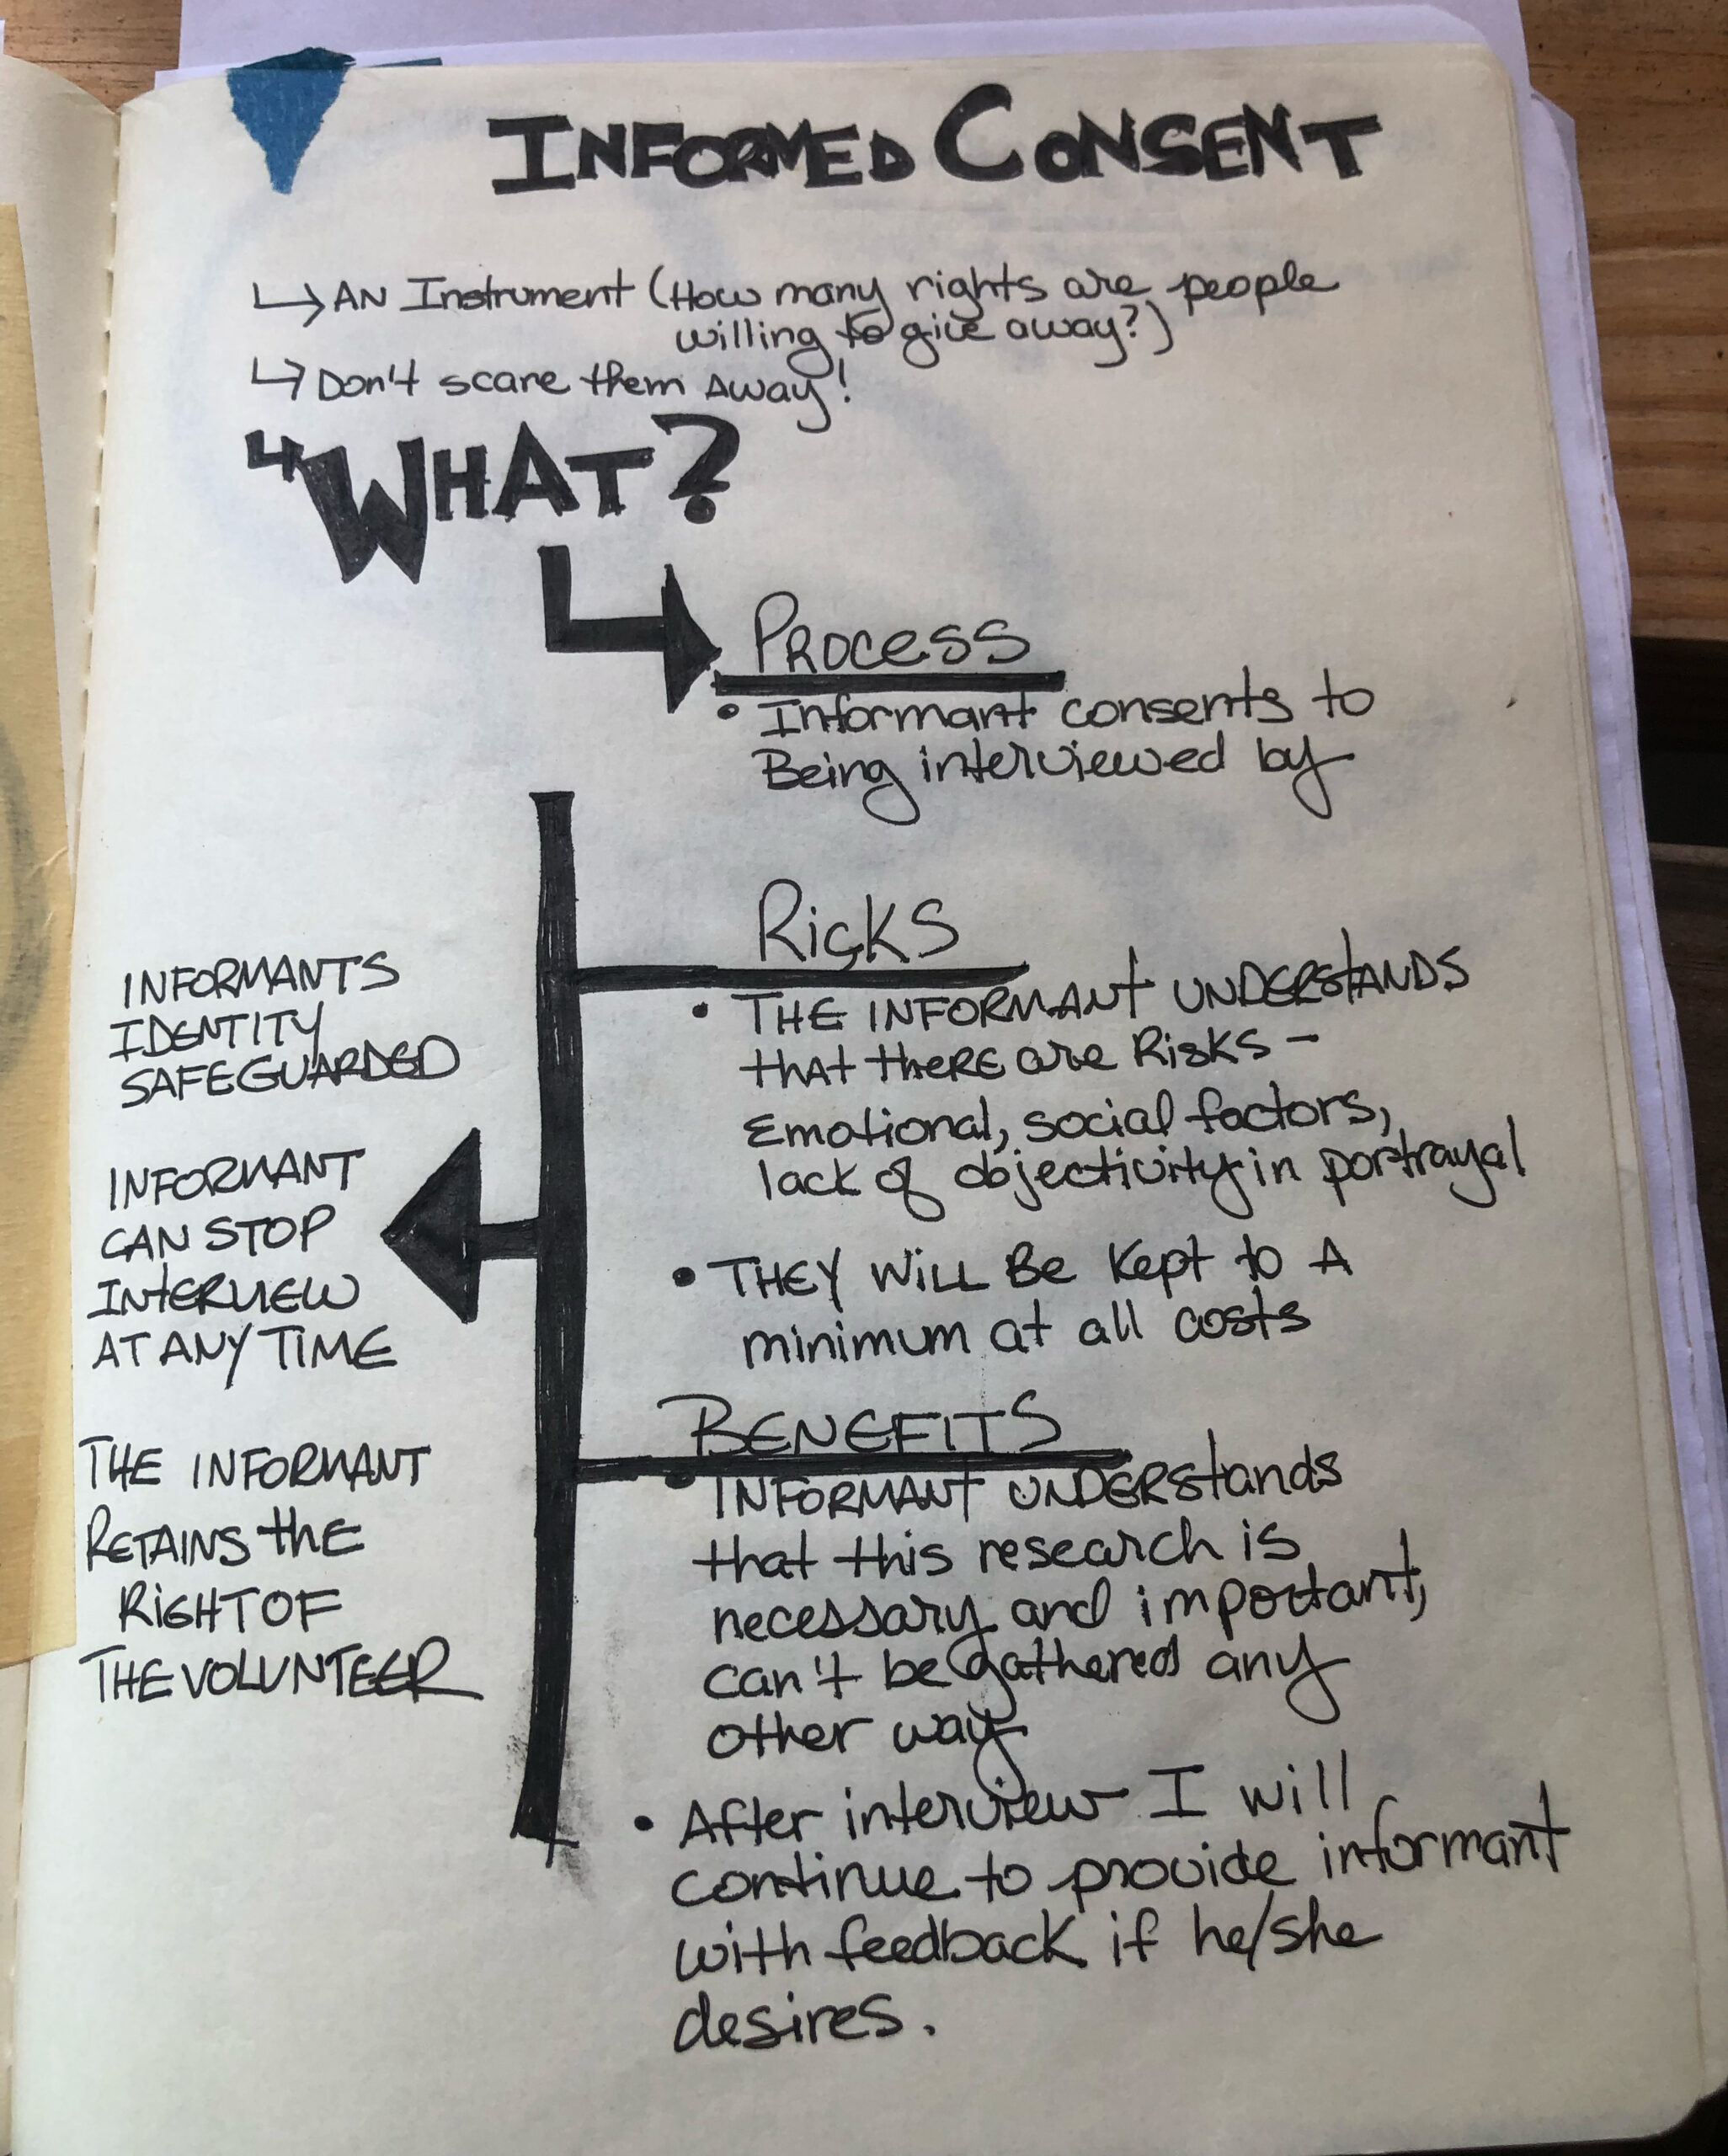 INFORMED CONSENT
↳ AN Instrument (How many rights are people
willing to give away?)
↳ Don't scare them Away!
↳ WHAT?
PROCESS
• Informant consents to
Being interviewed by
RisKS
• THE INFORMANT UNDERStANDS
tHAt tHERE are RisKS –
Emotional, social factors,
lack of objectivity in portrayal
• THEY WiLL Be Kept to A
minimum at all costs
BENEFITS
• INFORMANT UNDERStands
that this research is
necessary and important,
can't be gathered any
other way
• After interview I will
continue to provide informant
with feedback if he/she
desires.
INFORMANTS
IDENTITY
SAFEGUARDED
INFORMANT
CAN STOP
INtERVIEW
AT ANY TIME
THE INFORMANT
RETAINS thE
RiGHT OF
THE VOLUNTEER